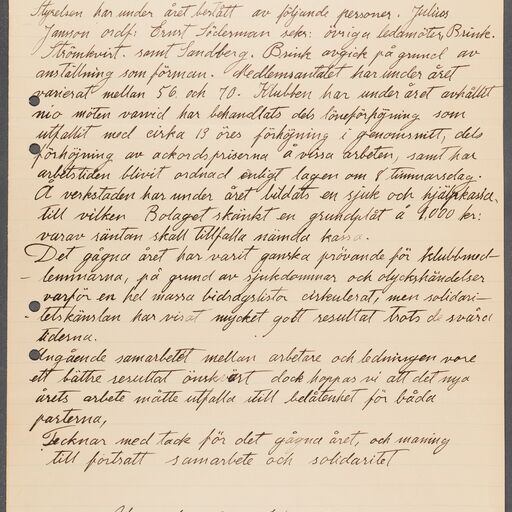 Styrelsen har under året bestått av följande personer. Julius
Jansson ordf: Ernst Söderman sekr: övriga ledamöter, Brink.
Strömkvist. samt Sandberg. Brink avgick på grund av
anställning som förman. Medlemsantalet har under året
varierat mellan 56. och 70. Klubben har under året avhållit
nio möten varvid har behandlats dels löneförhöjning som
utfallit med cirka 13 öres förhöjning i genomsnitt, dels
förhöjning av ackordspriserna å vissa arbeten, samt har
arbetstiden blivit ordnad enligt lagen om 8 timmarsdag.
Å verkstaden har under året bildats en sjuk och hjälpkassa.
till vilken Bolaget skänkt en grundplåt å 9.000 kr:
varav räntan skall tillfalla nämda kassa.
Det gågna året har varit ganska prövande för klubbmed-
- lemmarna, på grund av sjukdommar och olyckshändelser
varför en hel massa bidragslistor cirkulerat, men solidari-
- tetskänslan har visat mycket gott resultat trots de svåra
tiderna.
Angående samarbetet mellan arbetare och ledningen vore
ett bättre resultat önskvärt dock hoppas vi att det nya
årets arbete måtte utfalla till belåtenhet för båda
parterna,
Tecknar med tack för det gågna året, och maning
till fortsatt samarbete och solidaritet